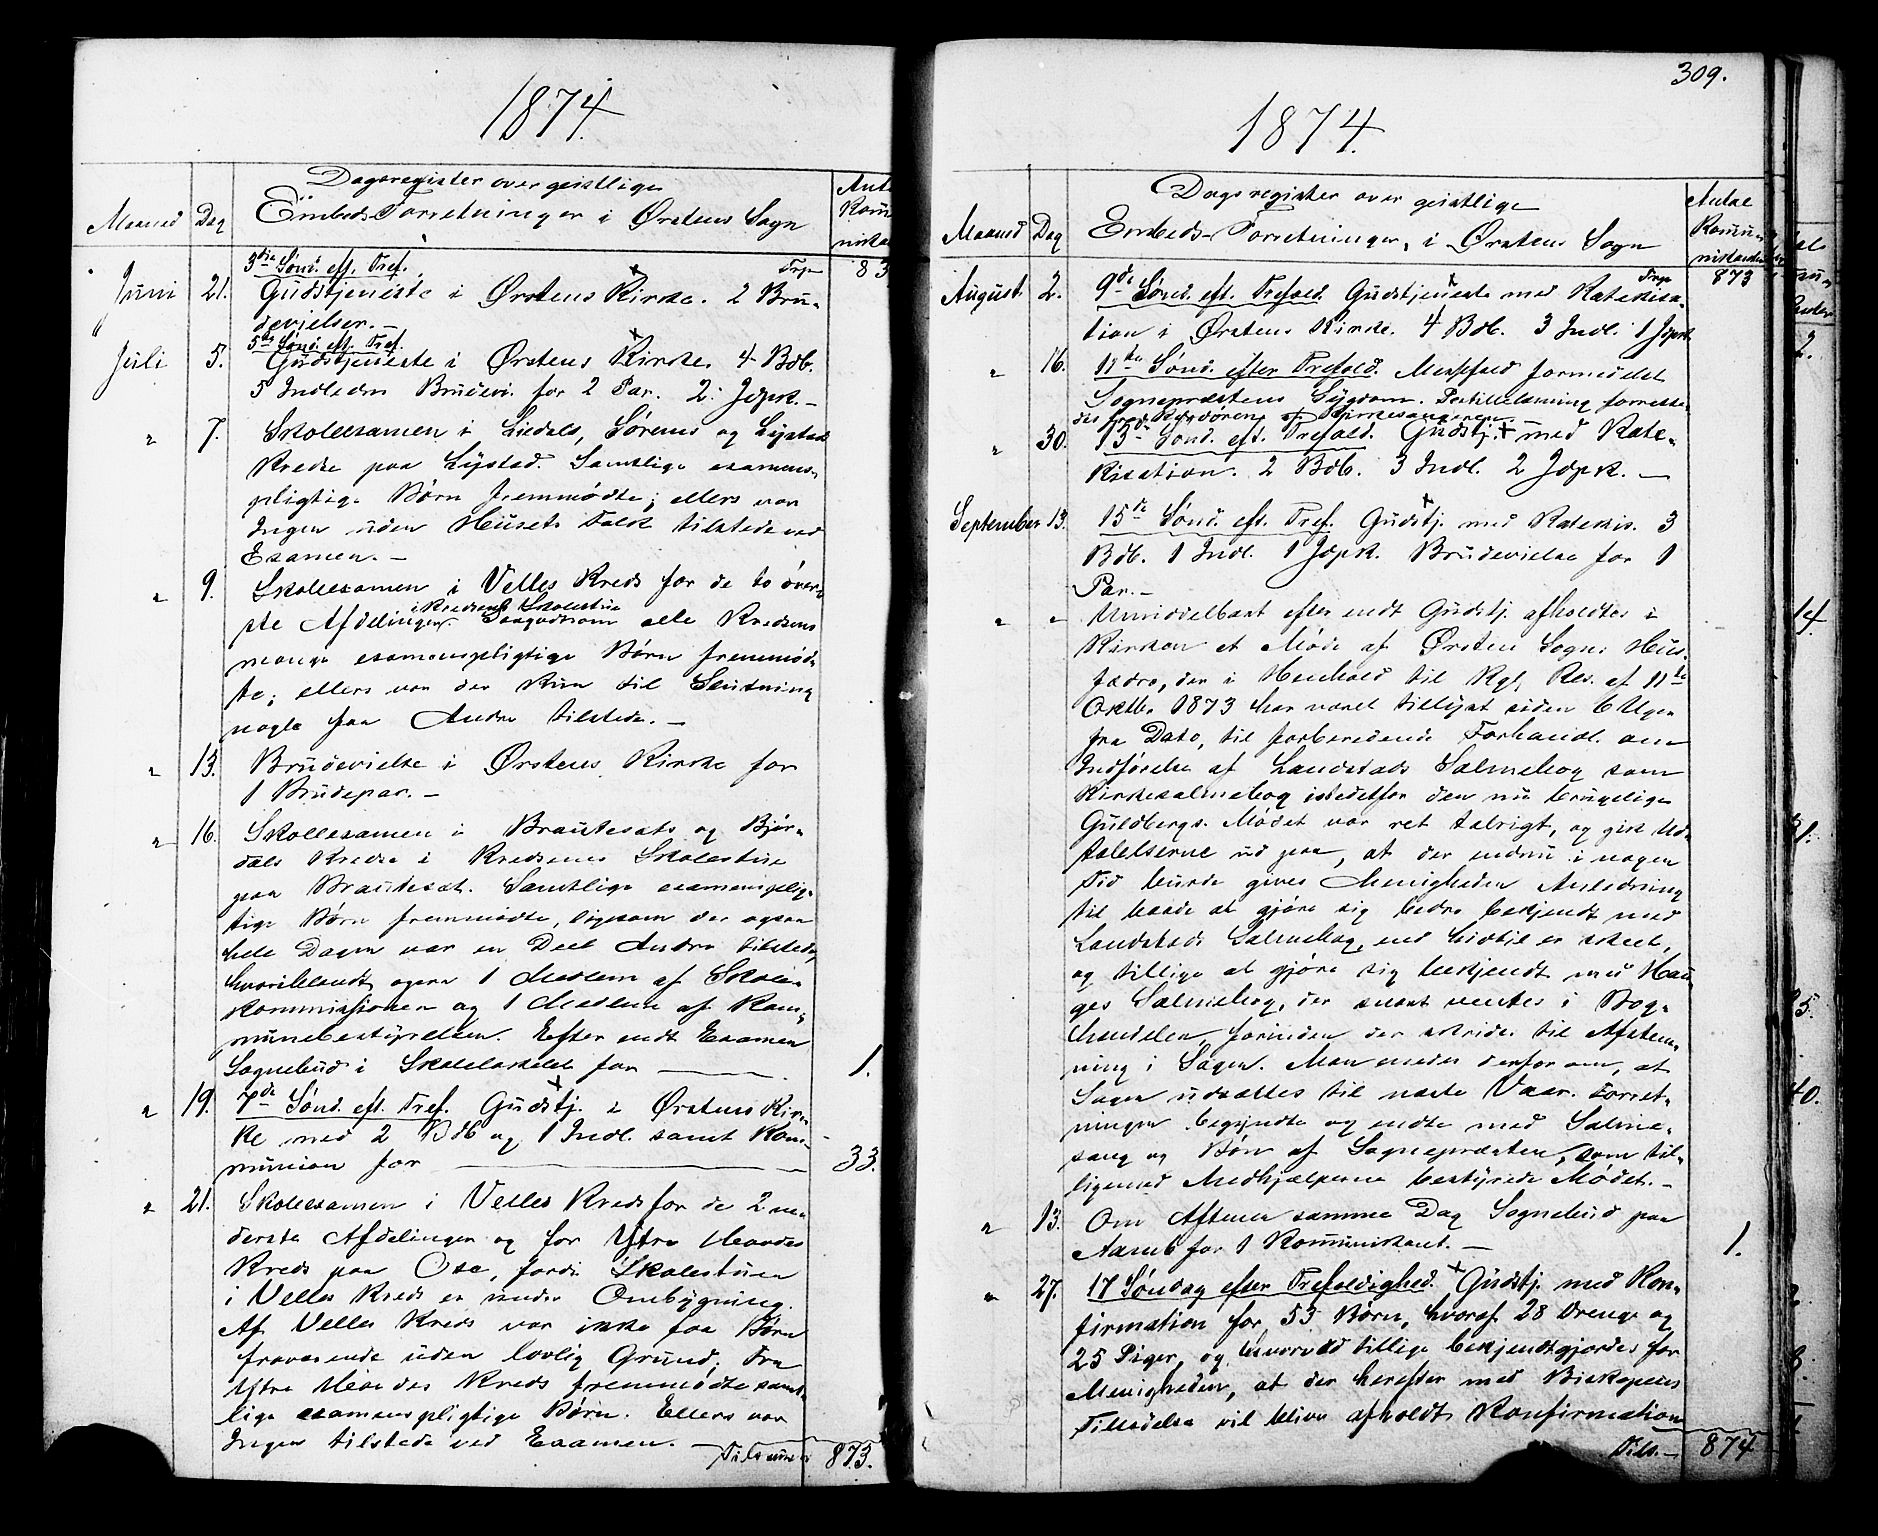 1874.
Dagsregister over geistlige
Embeds-Forretninger i Ørstens Sogn
Maaned
Dag
3die Sønd. eft. Tref.
Trp
Juni 21. Gudstjeneste i Ørstens Kirke. 2 Bru-
devielser. —
5te Sønd. eft. Tref.
Juli 5. Gudstjeneste i Ørstens Kirke. 4 Bdb.
5 Indledn Brudevi. for 2 Par. 2 Jdpk. —
" 7. Skoleexamen i Liedals, Sørenes og Lystad
Kredse paa Lystad. Samtlige examens-
pligtige Børn fremmødte; ellers var
Ingen uden Husets Folk tilstede ved
Examen. —
" 9. Skoleexamen i Velle Kreds for de to øver-
i Kredsens Skolestue
ste Afdelinger. Saagodtsom alle Kredsens
mange examenspligtige Børn fremmød-
te; ellers var der kun til Slutning
nogle faa Andre tilstede. —
" 13. Brudevielse i Ørstens Kirke for
1 Brudepar. —
" 16. Skoleexamen i Brautesæts og Bjør-
dals Kredse i Kredsenes Skolestue
paa Brautesæt. Samtlige examensplig-
tige Børn fremmødte, ligesom der ogsaa
hele Dagen var en Deel Andre tilstede,
hvoriblandt ogsaa 1 Medlem af Skole-
kommissionen og 1 Medlem af Kom-
munebestyrelsen. Efter endt Examen
Sognebud i Skolelokalet for — 1.
" 19. 7de Sønd. eft. Tref. Gudstj. i Ørstens Kir-
ke med 2 Bdb og 1 Indl. samt Kom-
munion for — 33.
" 21. Skoleexamen i Velle Kreds for de 2 ne-
derste Afdelinger og for Ytre Hovdes
Kreds paa Ose, fordi Skolestuen
i Velle Kreds er under Ombygning.
Af Velle Kreds var ikke faa Børn
fraværende uden lovlig Grund; Fra
Ytre Hovdes Kreds fremmødte samt-
lige examenspligtige Børn. Ellers var
Ingen tilstede ved Examen. —
873.
309.
1874.
Dagsregister over geistlige
Embeds-Forretninger, i Ørstens Sogn
Maaned
Dag
Antal
Kommu-
nikanter
Trp
873
August. 2. 9de Sønd. eft. Trefold. Gudstjeneste med Katekisa-
tion i Ørstens Kirke. 4 Bdb. 3 Indl. 1 Jdpk.
" 16. 11te Sønd. efter Trefold. Messefald formedelst
Sognepræstens Sygdom. Postillelæsning forrette-
des fra Kordøren af Kirkesangeren
" 30. 13de Sønd. eft. Trefold. Gudstj. med Kate-
kisation. 2 Bdb. 3 Indl. 2 Jdpk. —
September 13. 15de Sønd. eft. Tref. Gudstj. med Katekis. 3
Bdb. 1 Indl. 1 Jdpk. Brudevielse for 1
Par. —
" " Umiddelbart efter endt Gudstj. afholdtes i
Kirken et Møde af Ørsten Sogns Hus-
fædre, der i Henhold til Kgl. Res. af 11te
Oktbr 1873 har været tillyst siden 6 Uger
fra Dato, til forberedende Forhandl. om
Indførelse af Landstads Salmebog som
Kirkesalmebog istedetfor den nu brugelige
Guldbergs. Mødet var ret talrigt, og gik Ud-
talelserne ud paa, at der endnu i nogen
Tid burde gives Menigheden Anledning
til baade at gjøre sig bedre bekjendt med
Landstads Salmebog, end hidtil er skeet,
og tillige at gjøre sig bekjendt med Hau-
ges Salmebog, der snart ventes i Bog-
handelen, forinden der skrides til Afstem-
ning i Sagen. Man enedes derfor om, at
Sagen udsættes til næste Vaar. Forret-
ningen begyndte og endte med Salme-
sang og Bøn af Sognepræsten, som til-
ligemed Medhjælperne bestyrede Mødet. —
" 13. Om Aftenen samme Dag Sognebud paa
Aarsnb for 1 Kommunikant. — 1.
" 27. 17 Søndag efter Trefoldighed. Gudstj. med Kon-
firmation for 53 Børn, hvoraf 28 Drenge og
25 Piger, og hvorved tillige bekjendtgjordes for
Menigheden, at der herefter med Biskopens
Tilladelse vil blive afholdt Konfirmation
Tils. — 874